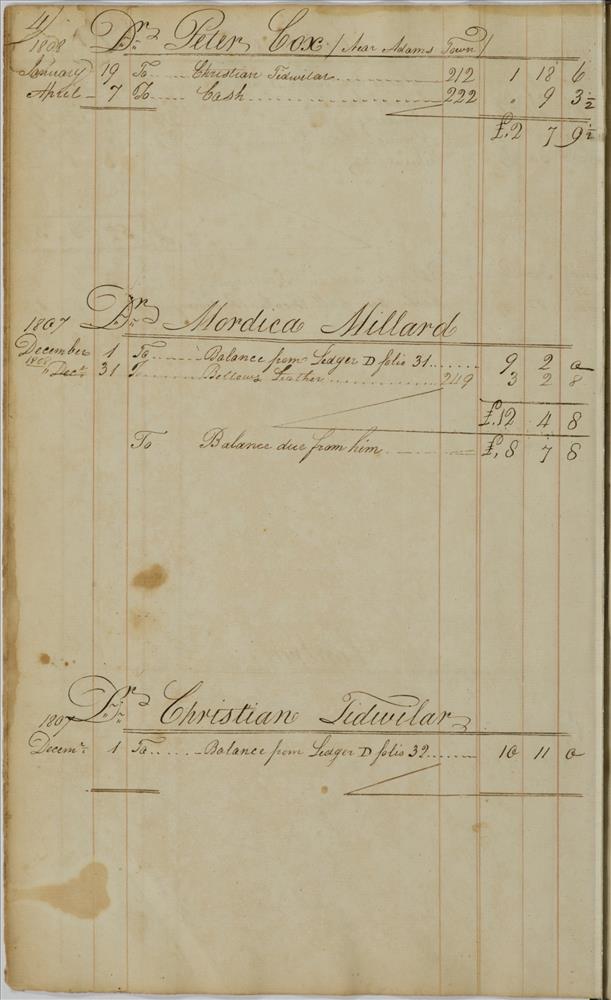 4/
1808 Dr Peter Cox / Near Adams Town /
January 19 To Christian Tidwilar 212 1 18 6
April 7 To Cash 222 . 9 3½
£.2 7 9½
1807 Dr Mordica Millard
December 1 To Balance from Ledger D folio 31 9 2 0
1808 " Decr 31 To Bellows Leather 249 3 2 8
£.12 4 8
To Balance due from him £.8 7 8
1807 Dr Christian Tidwilar
Decemr 1 To Balance from Ledger D folio 32 10 11 0